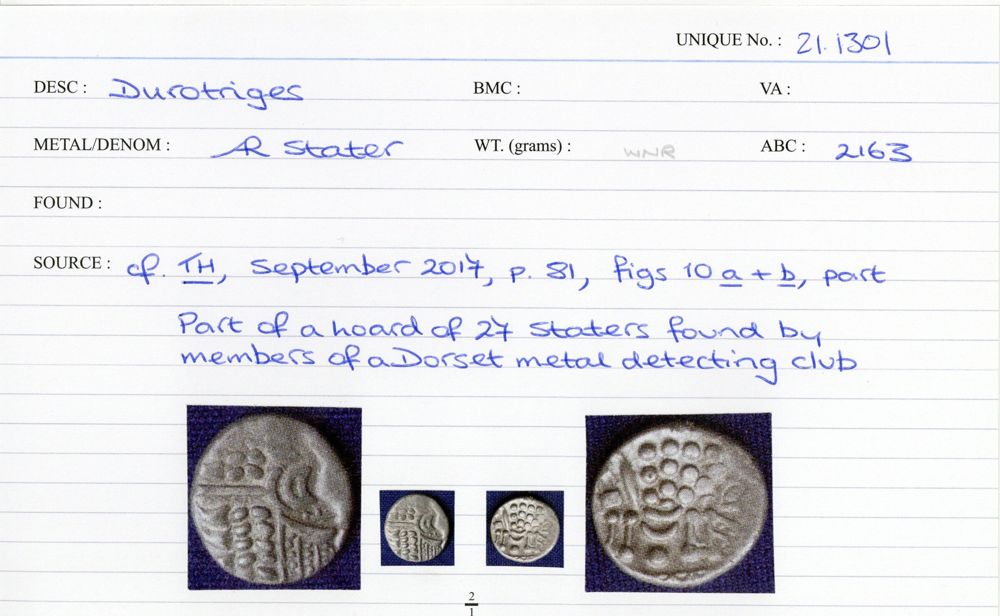 UNIQUE No. : 21.1301
DESC : Durotriges BMC : VA :
METAL/DENOM : AR Stater WT. (grams) : WNR ABC : 2163
FOUND :
SOURCE : cf. TH, September 2017, p. 81, figs 10 a + b, part
Part of a hoard of 27 staters found by
members of a Dorset metal detecting club
2
1